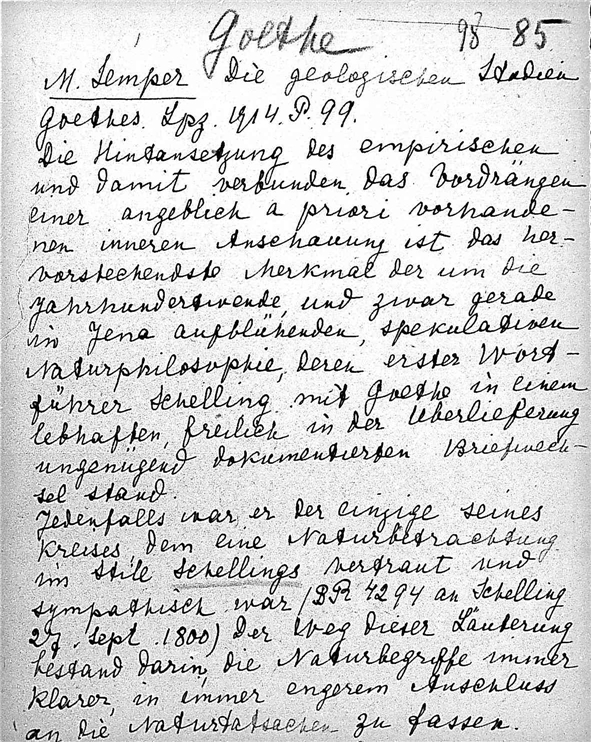 Goethe 98 85
M. Semper Die geologischen Studien
Goethes. Lpz. 1914. P. 99.
Die Hintansetzung des empirischen
und damit verbunden, das Vordrängen
einer angeblich a priori vorhande-
nen inneren Anschauung ist das her-
vorstechendste Merkmal der um die
Jahrhundertwende, und zwar gerade
in Jena aufblühenden, spekulativen
Naturphilosophie, deren erster Wort-
führer Schelling mit Goethe in einem
lebhaften, freilich in der Überlieferung
ungenügend dokumentierten Briefwech-
sel stand.
Jedenfalls war er der einzige seines
Kreises, dem eine Naturbetrachtung
im Stile Schellings vertraut und
sympathisch war (BR 4294 an Schelling
27. Sept. 1800) Der Weg dieser Läuterung
bestand darin, die Naturbegriffe immer
klarer, in immer engerem Anschluss
an die Naturtatsachen zu fassen.